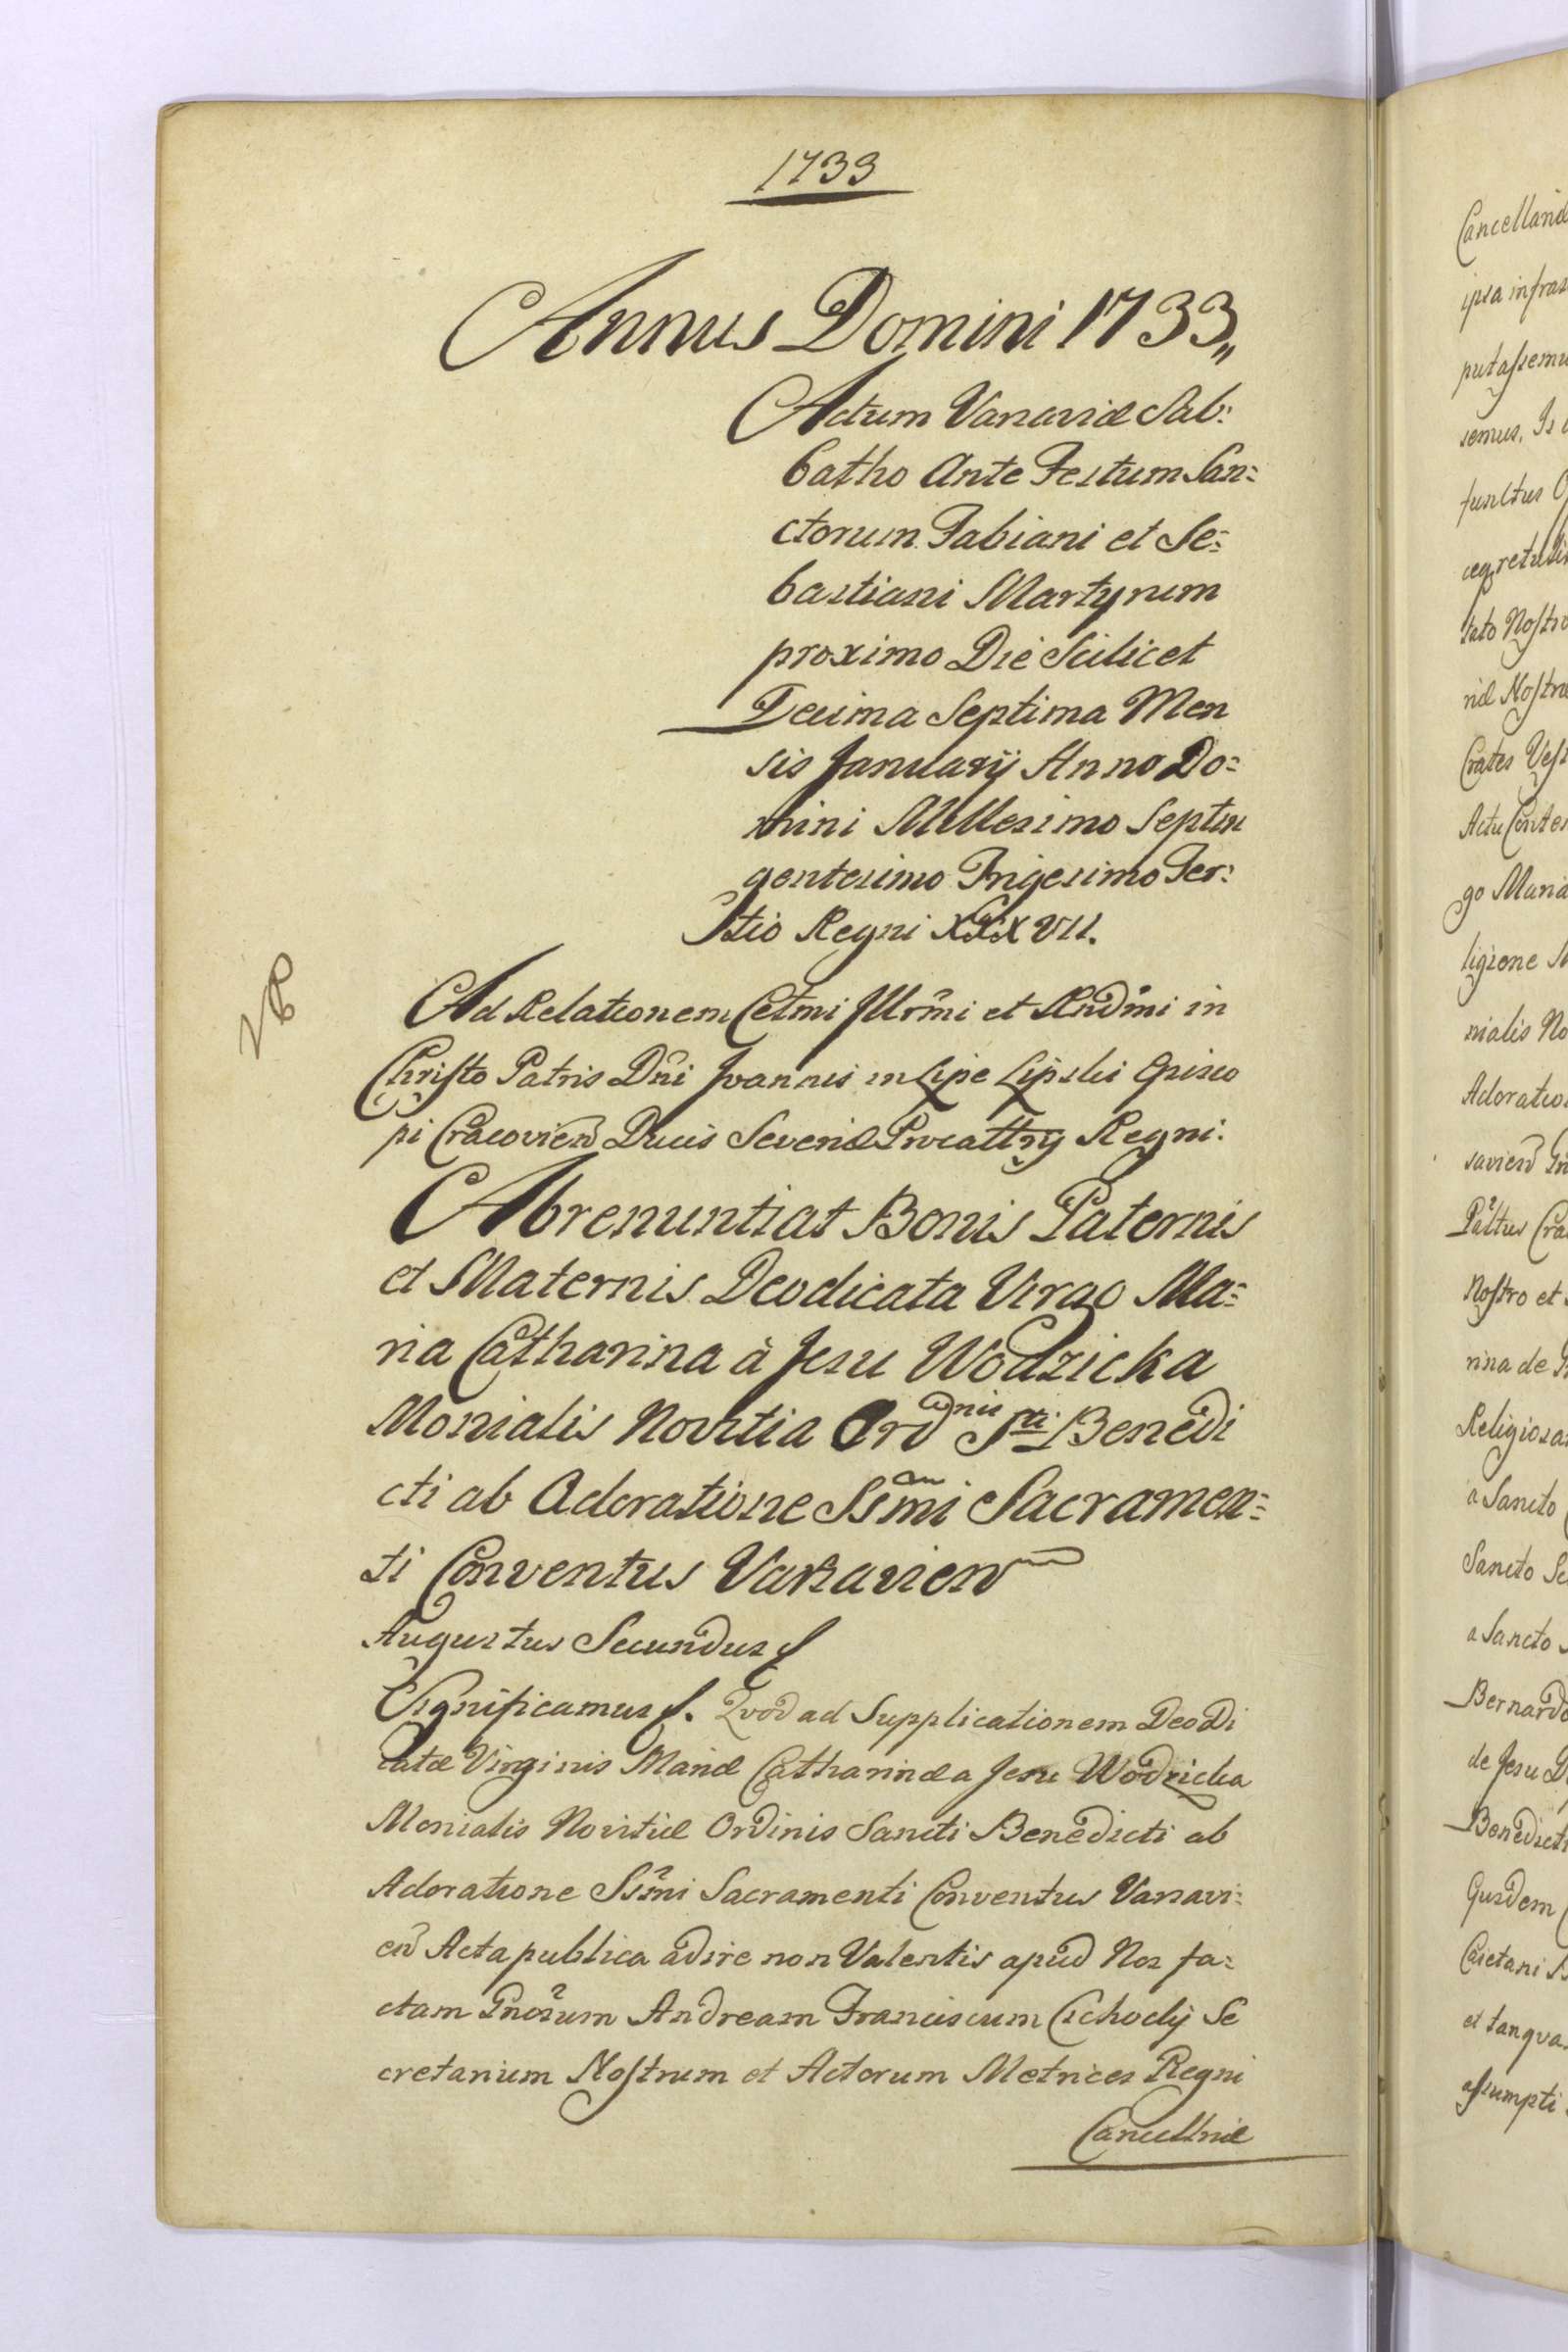 1733
Annus Domini 1733„
Actum Varsaviæ Sab:
batho Ante Festum San:
ctorum Fabiani et Se:
bastiani Martyrum
proximo Die Scilicet
Decima Septima Men
sis Januarij Anno Do:
mini Millesimo Septin
gentesimo Trigesimo Ter:
tio Regni XXXVII.
Ad Relationem Celmi Illrmi et Rndmi in
Christo Patris Dni Joannis in Lipe Lipski Episco
pi Cracovien Ducis Severiæ Procallrij Regni.
Abrenuntiat Bonis Paternis
et Maternis Deodicata Virgo Ma:
ria Catharina à Jesu Wodzicka
Monialis Novitia Ordnis Sti Benedi
cti ab Adoratione Ssmi Sacramen:
ti Conventus Varsavien
Augustus Secundus
Significamus Quod ad Supplicationem Deodi
catæ Virginis Mariæ Catharinæ a Jesu Wodzicka
Monialis Novitiæ Ordinis Sancti Benedicti ab
Adoratione Ssmi Sacramenti Conventus Varsavi:
en Acta publica adire non Valentis apud Nos fa:
ctam Gnosum Andream Franciscum Cichocky Se
cretarium Nostrum et Actorum Metrices Regni
Cancellriæ
Cancellariæ
ipsa infras
putassemu
semus. Is
functus
ceq retuli
tato Nostro
riæ Nostræ
Crates
Actu Conten
go Maria
ligione
nialis No
Adoratio
savien
Cra
Nostro et
rina de
Religiosa
a Sancto
Sancto
a Sancto
Bernardo
de Jesu
Benedicti
Ejusdem
Caietani
et tanqua
assumpti